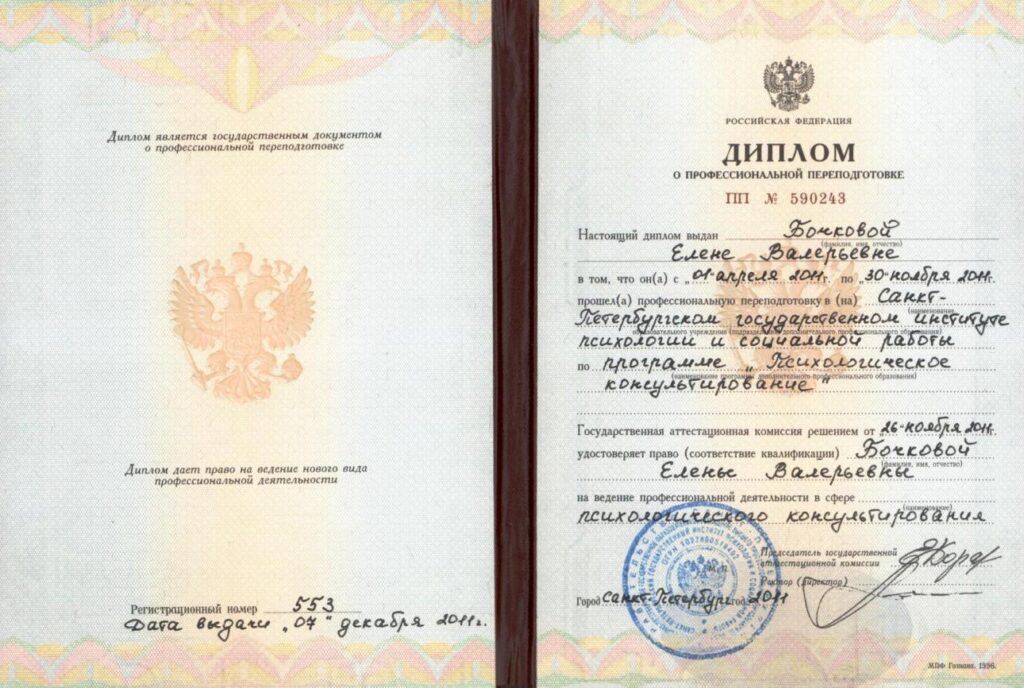 Диплом является государственным документом
о профессиональной переподготовке
Диплом дает право на ведение нового вида
профессиональной деятельности
Регистрационный номер 553
Дата выдачи „07" декабря 2011г.
РОССИЙСКАЯ ФЕДЕРАЦИЯ
ДИПЛОМ
О ПРОФЕССИОНАЛЬНОЙ ПЕРЕПОДГОТОВКЕ
ПП № 590243
Настоящий диплом выдан Бочковой
(фамилия, имя, отчество)
Елене Валерьевне
в том, что он(а) с „01 апреля 2011г. по „30 ноября 2011г.
прошел(а) профессиональную переподготовку в (на) Санкт-
(наименование
Петербургском государственном институте
образовательного учреждения (подразделения) дополнительного профессионального образования)
психологии и социальной работы
по программе „Психологическое
(наименование программы дополнительного профессионального образования)
консультирование"
Государственная аттестационная комиссия решением от 26 ноября 2011г.
удостоверяет право (соответствие квалификации) Бочковой
(фамилия, имя, отчество)
Елены Валерьевны
на ведение профессиональной деятельности в сфере
(наименование)
психологического консультирования
Председатель государственной
аттестационной комиссии
Ректор (директор)
Город Санкт-Петербург год 2011
МПФ Гознака. 1996.